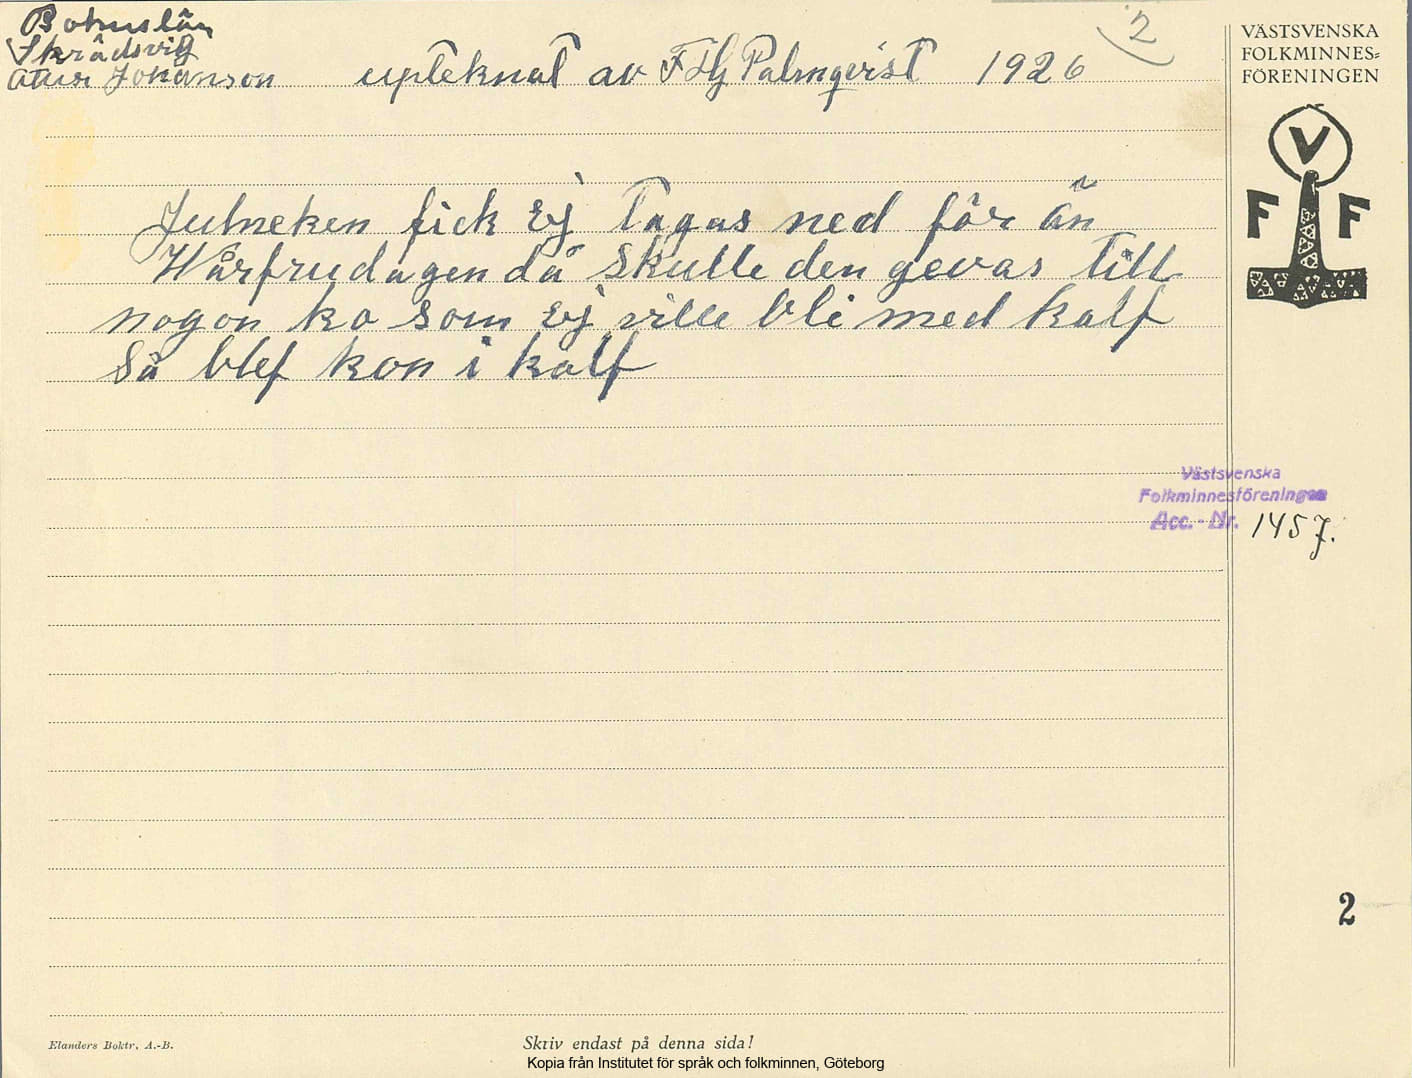 Bohuslän
Skrädsvig
Johanson upteknat av F Hj Palmqvist 1926
2
VÄSTSVENSKA
FOLKMINNES=
FÖRENINGEN
V
F F
Julneken fick Ej Tagas ned för än
Wårfrudagen då skulle den gevas Till
nogon ko som Ej ville bli med kalf
så blef kon i kalf
Västsvenska
Folkminnesföreningen
Acc. - Nr. 1457.
2
Elanders Boktr. A.-B.
Skriv endast på denna sida!
Kopia från Institutet för språk och folkminnen, Göteborg